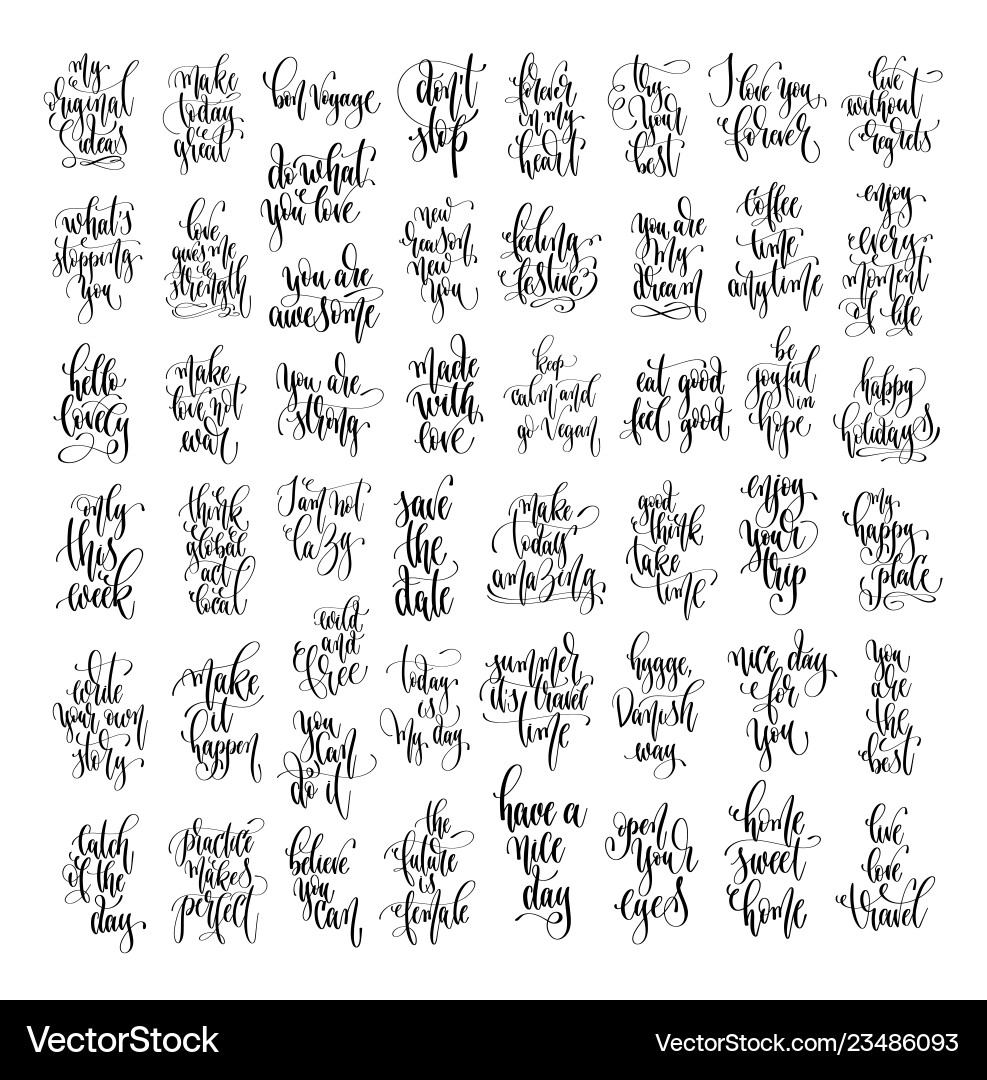 my
original
ideas
make
today
great
bon voyage
do what
you love
don't
stop
forever
in my
heart
try
your
best
I love you
forever
live
without
regrets
what's
stopping
you
love
gives me
strength
you are
awesome
new
season
new
you
feeling
festive
you are
my
dream
coffee
time
anytime
enjoy
every
moment
of life
hello
lovely
make
love not
war
you are
strong
made
with
love
keep
calm and
go vegan
eat good
feel good
be
joyful
in
hope
happy
holidays
only
this
week
think
global
act
local
I am not
lazy
save
the
date
make
today
amazing
good
think
take
time
enjoy
your
trip
my
happy
place
write
your own
story
make
it
happen
wild
and
free
you
can
do it
today
is
my day
summer
it's travel
time
hygge,
Danish
way
nice day
for
you
you
are
the
best
catch
of the
day
practice
makes
perfect
believe
you
can
the
future
is
female
have a
nice
day
open
your
eyes
home
sweet
home
live
love
travel
VectorStock®
VectorStock.com/23486093